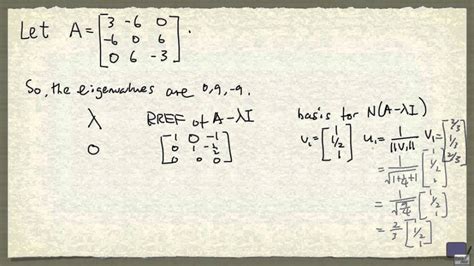 Let A = [3 -6 0
-6 0 6
0 6 -3].
So, the eigenvalues are 0, 9, -9.
λ RREF of A-λI basis for N(A-λI)
0 [1 0 -1
0 1 -1/2
0 0 0]
v₁ = [1
1/2
1] u₁ = 1/||v₁|| v₁ = [2/3
1/3
2/3]
= 1/√(1+1/4+1) [1
1/2
1]
= 1/√(9/4) [1
1/2
1]
= 2/3 [1
1/2
1]